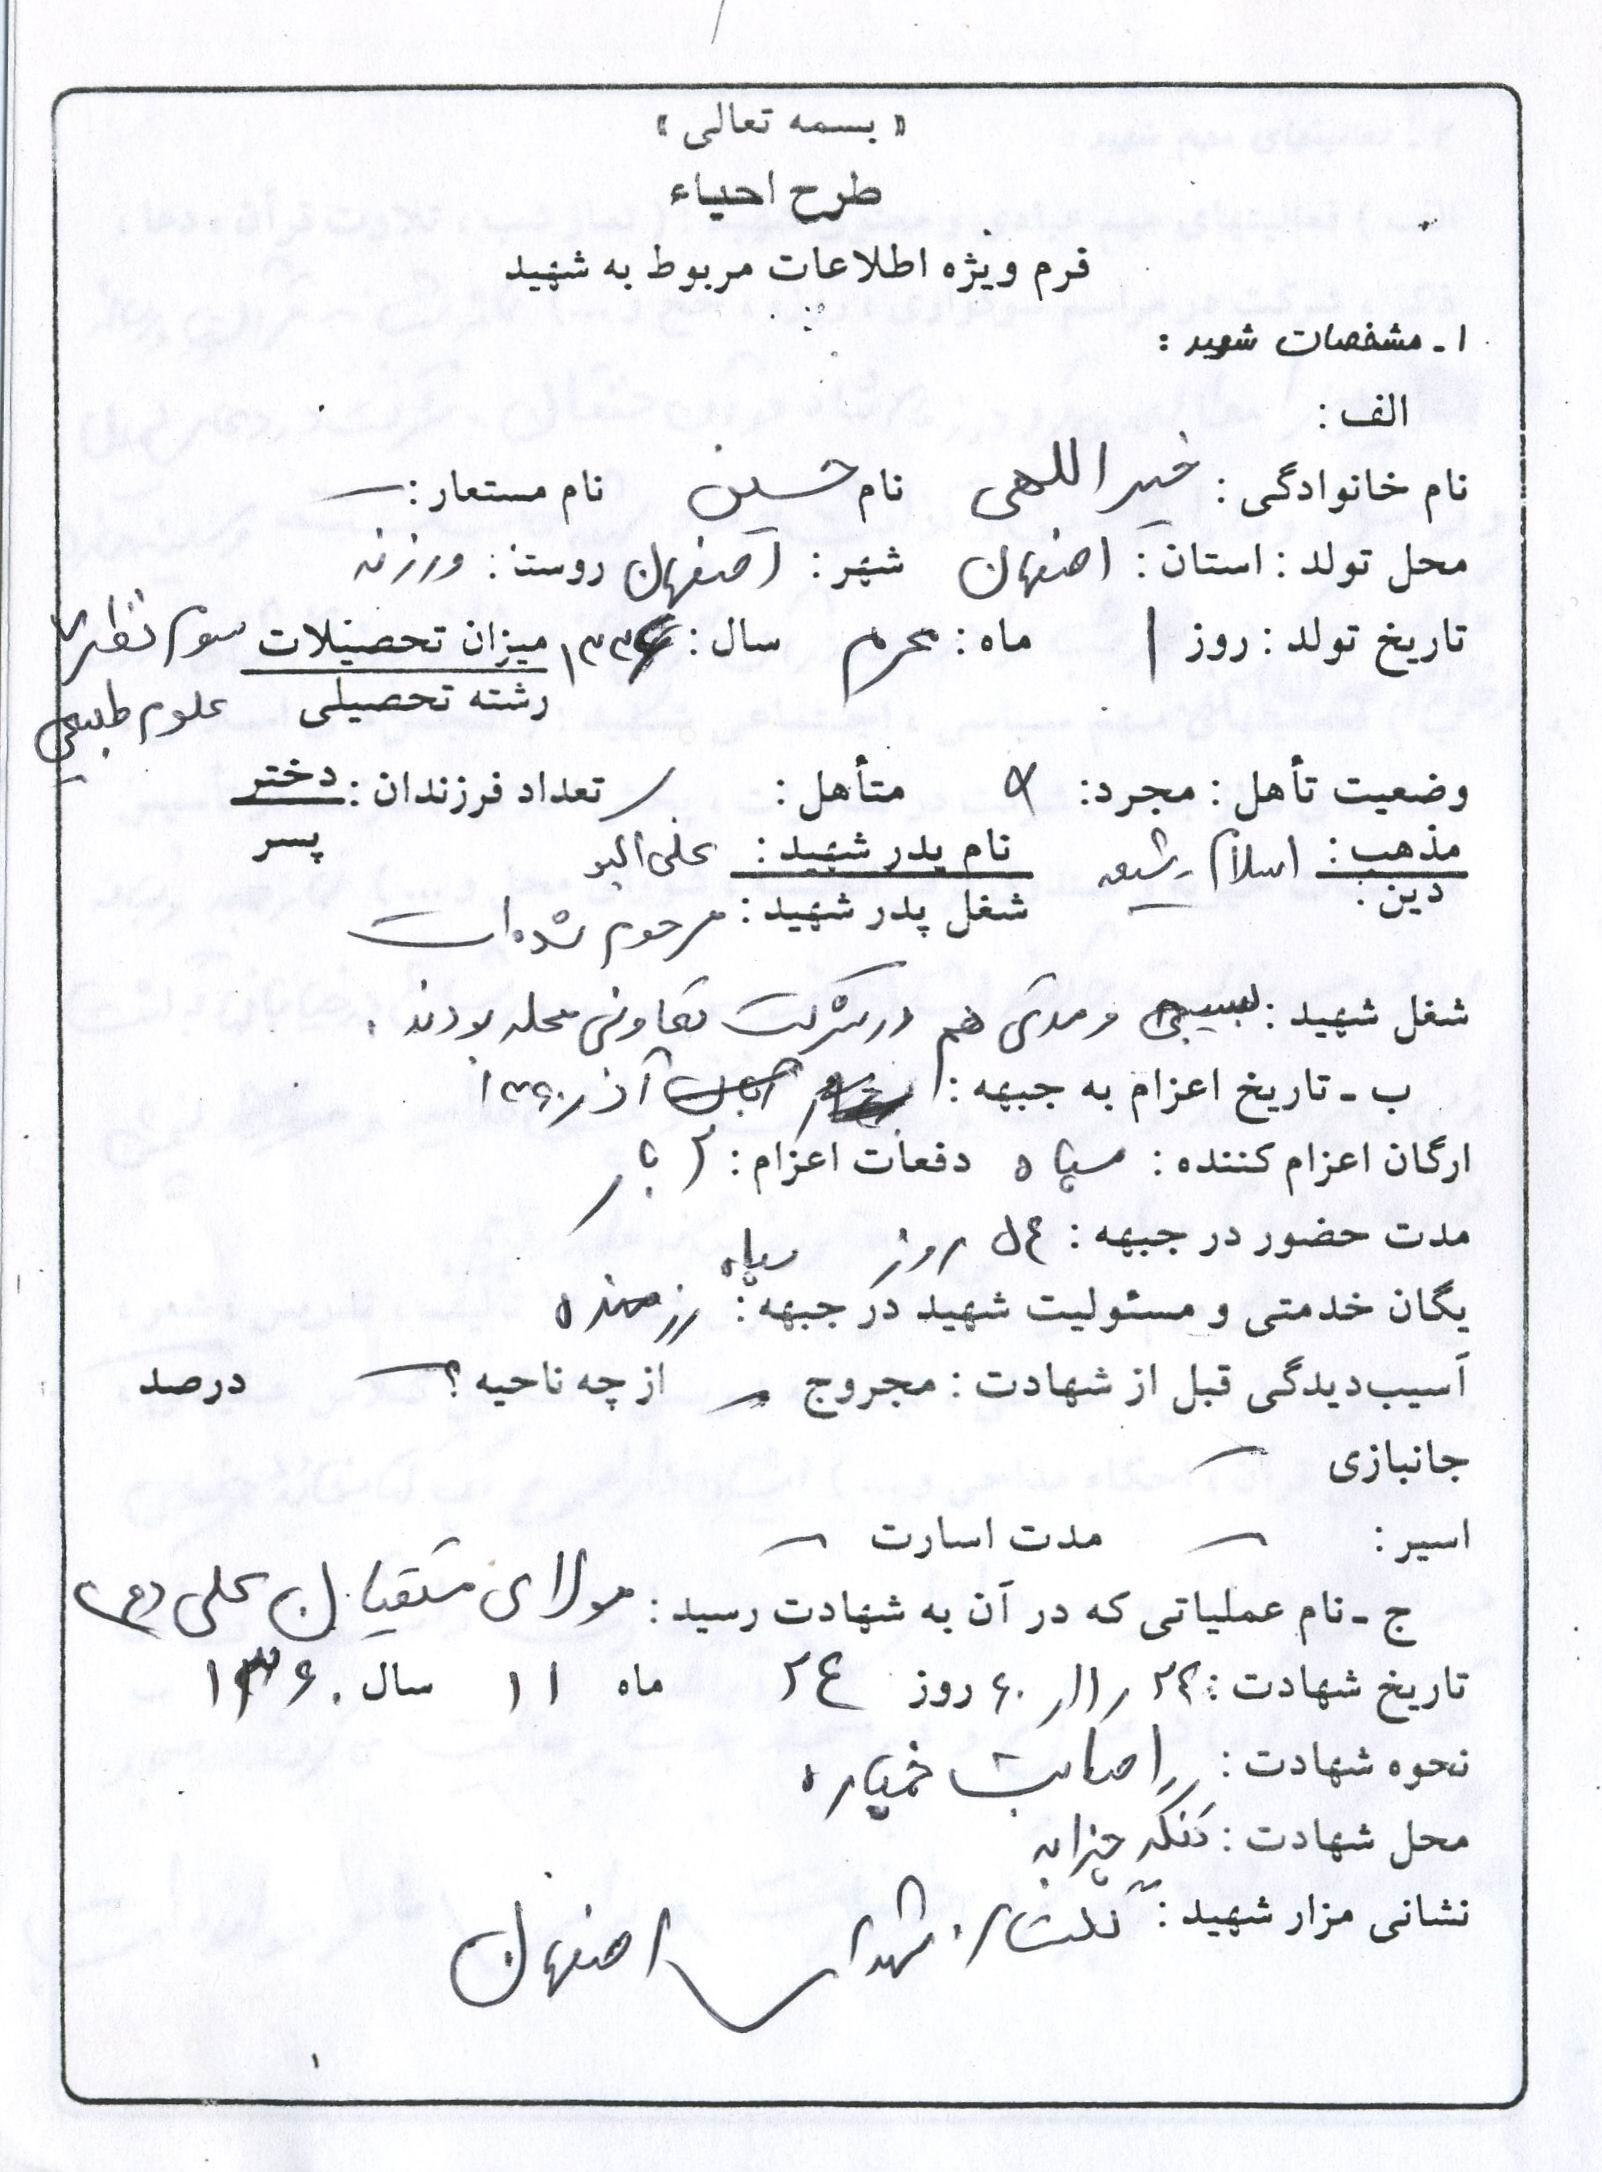 « بسمه تعالی »
طرح احیاء
فرم ویژه اطلاعات مربوط به شهید
۱ـ مشخصات شهید :
الف :
نام خانوادگی : خیراللهی نام حسین نام مستعار : ــ
محل تولد : استان : اصفهان شهر : اصفهان روستا : ورزنه
تاریخ تولد : روز ۱ ماه : محرم سال : میزان تحصیلات سوم نظری
رشته تحصیلی علوم طبیعی
وضعیت تأهل : مجرد : متأهل : تعداد فرزندان : دختر
پسر
مذهب : اسلام شیعه نام پدر شهید : علی اکبر
دین : شغل پدر شهید : مرحوم شده است
شغل شهید : بسیجی و مدتی هم در شرکت تعاونی محله بودند .
ب ـ تاریخ اعزام به جبهه : آذر ۱۳۶۰
ارگان اعزام کننده : سپاه دفعات اعزام : ۲ بار
مدت حضور در جبهه : ۵۴ روز سپاه
یگان خدمتی و مسئولیت شهید در جبهه : رزمنده
آسیب‌دیدگی قبل از شهادت : مجروح ــ از چه ناحیه ؟ ــ درصد
جانبازی ــ
اسیر : ــ مدت اسارت ــ
ج ـ نام عملیاتی که در آن به شهادت رسید : مولای متقیان علی (ع)
تاریخ شهادت : ۶۰/۱۱/۲۴ روز ۲۴ ماه ۱۱ سال ۱۳۶۰
نحوه شهادت : اصابت خمپاره
محل شهادت : تنگه چزابه
نشانی مزار شهید : گلستان شهدای اصفهان